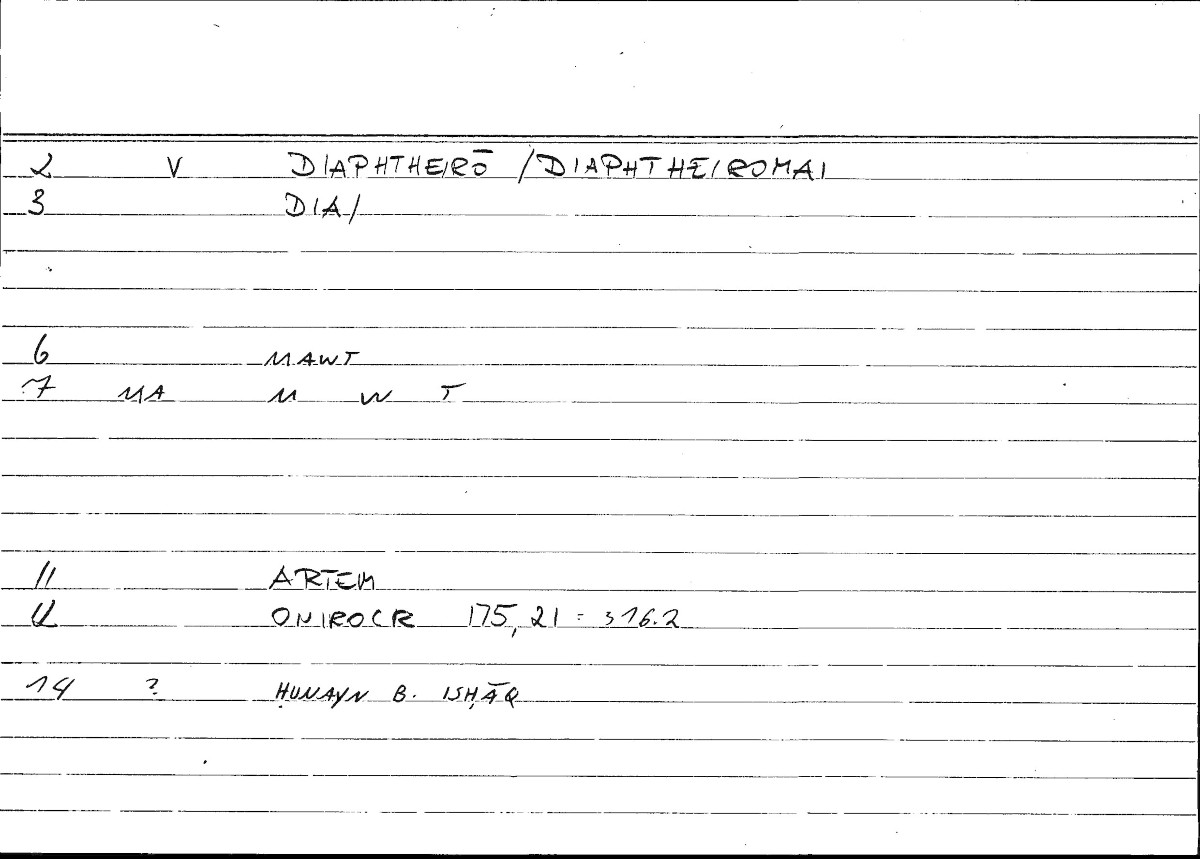 2 V DIAPHTHEIRŌ /DIAPHTHEIROMAI
3 DIA/
6 MAWT
7 MA M W T
11 ARTEM
12 ONIROCR 175,21 = 316.2
14 ? ḤUNAYN B. ISḤĀQ